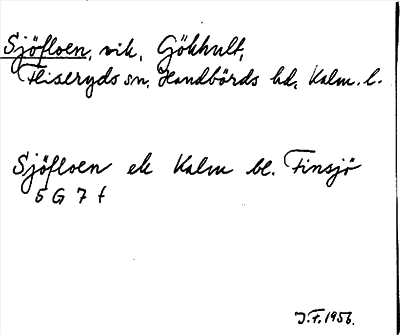 Sjöfloen, vik, Gökhult,
Fliseryds sn, Handbörds hd, Kalm. l.
Sjöfloen ek Kalm bl. Finsjö
5 G 7 f
J.F. 1956.